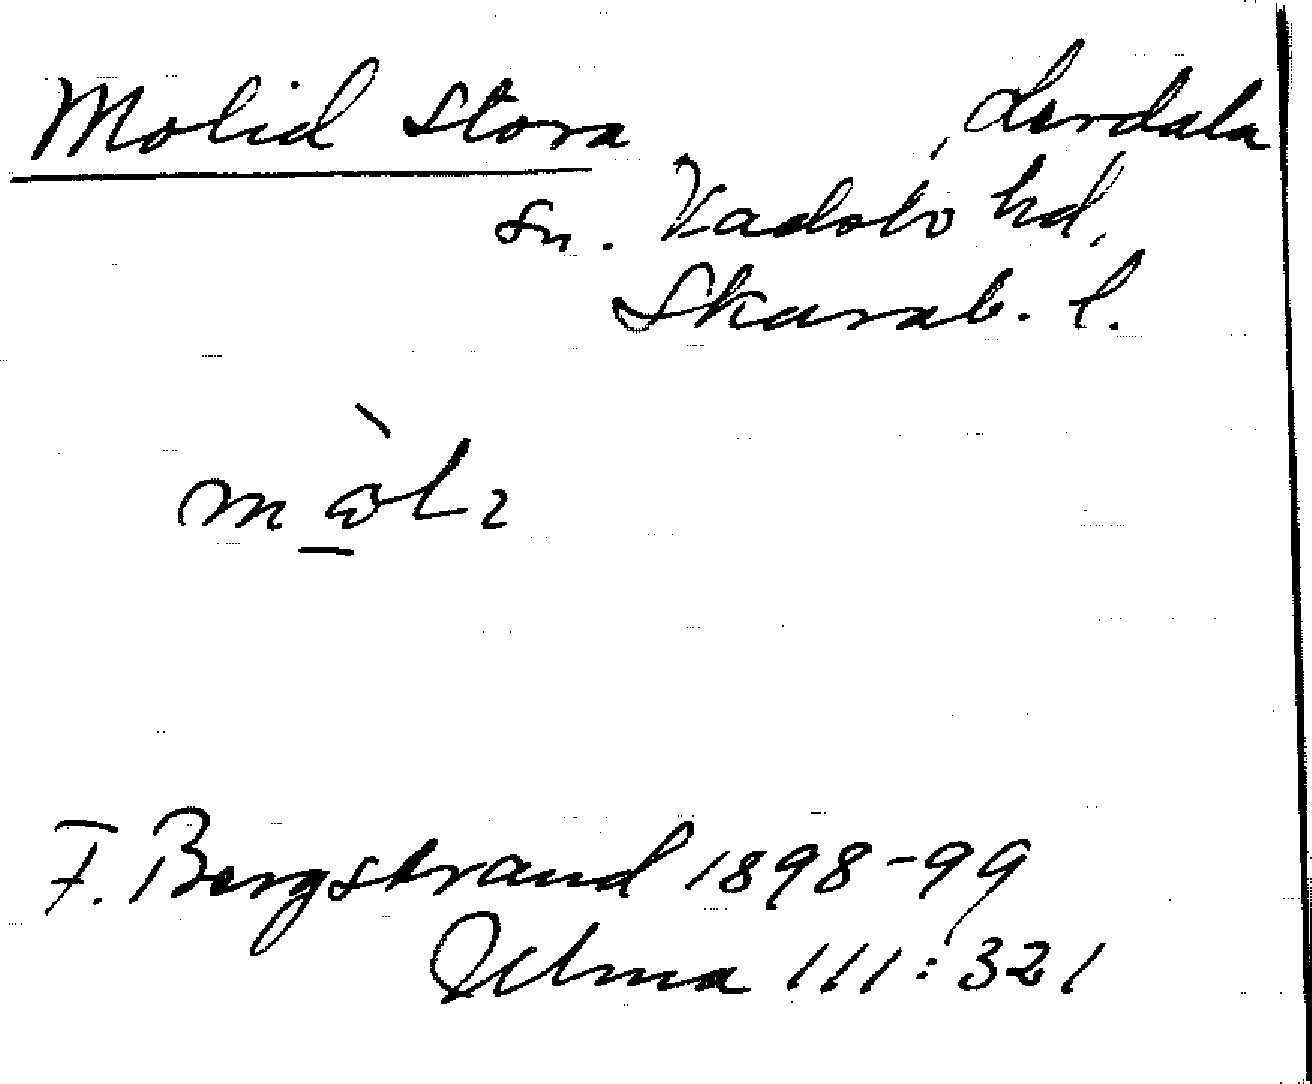 Molid Stora , Lerdala
sn. Kadsbo hd,
Skarab. l.
F. Bergstrand 1898-99
Ulma 111:321